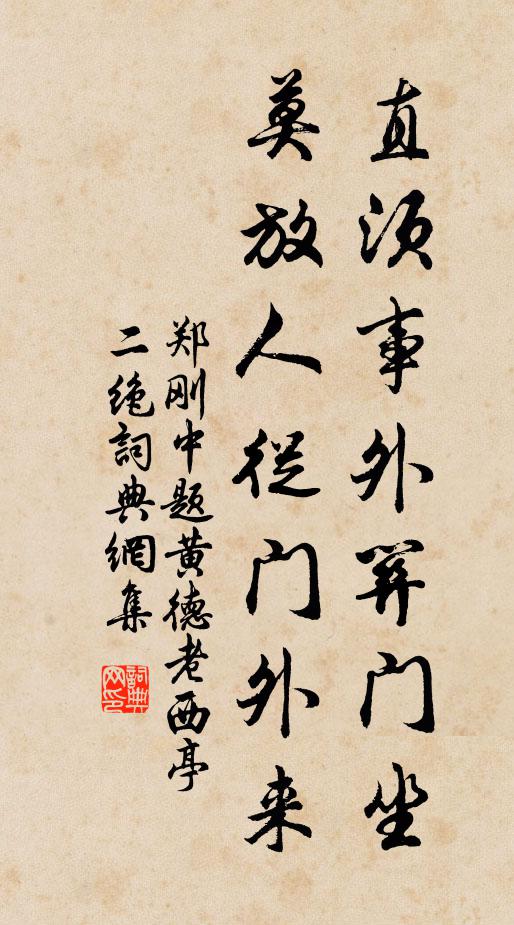 直須事外關门坐
莫放人從门外来
郑刚中题黄德老西亭
二绝詞典網集
詞典网印